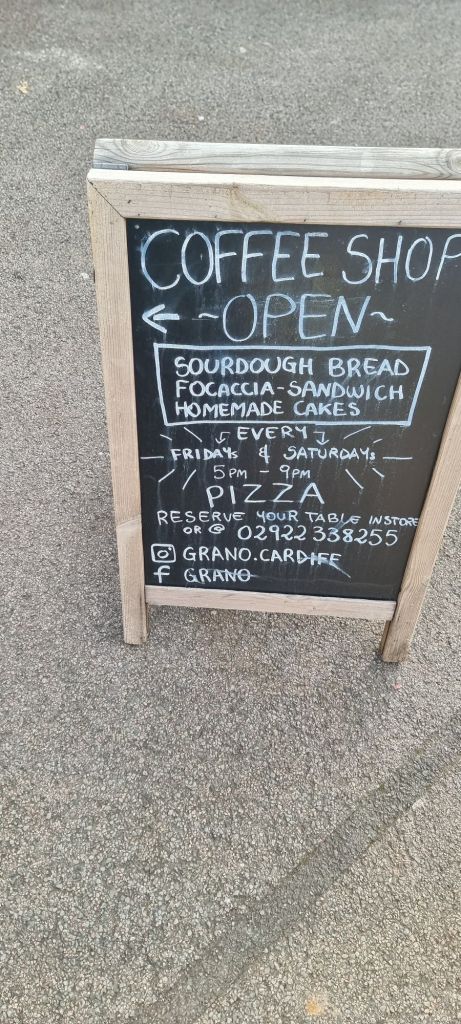 COFFEE SHOP
← ~OPEN~
SOURDOUGH BREAD
FOCACCIA-SANDWICH
HOMEMADE CAKES
EVERY
FRIDAYs & SATURDAYs
5PM - 9PM
PIZZA
RESERVE YOUR TABLE INSTORE
OR @ 02922338255
GRANO.CARDIFF
f GRANO